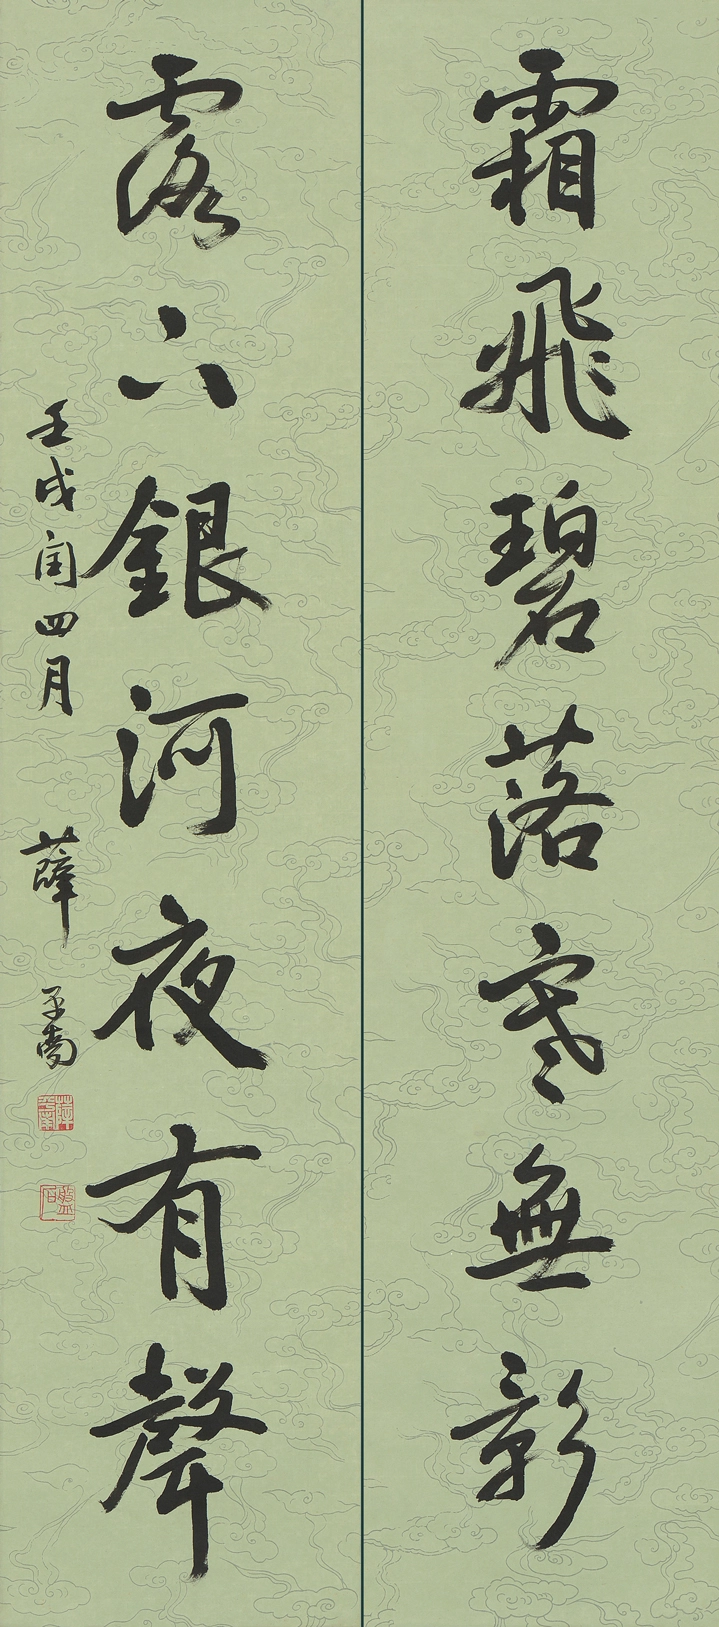 霜飛碧落寒無影
露下銀河夜有聲
壬戌閏四月 薛平南